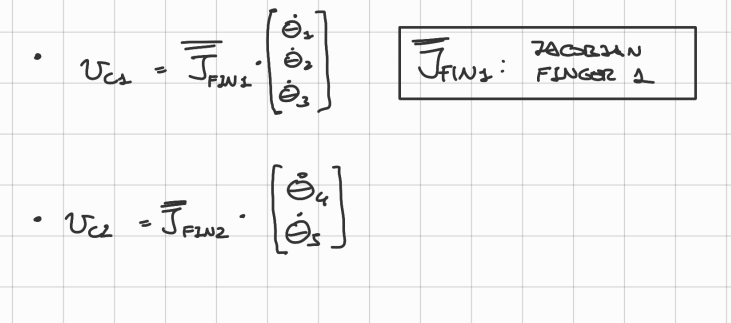 • v_C1 = J̿_FIN1 · [θ̇_1 θ̇_2 θ̇_3]
J̿_FIN1: JACOBIAN
FINGER 1
• v_C2 = J̿_FIN2 · [θ̇_4 θ̇_5]